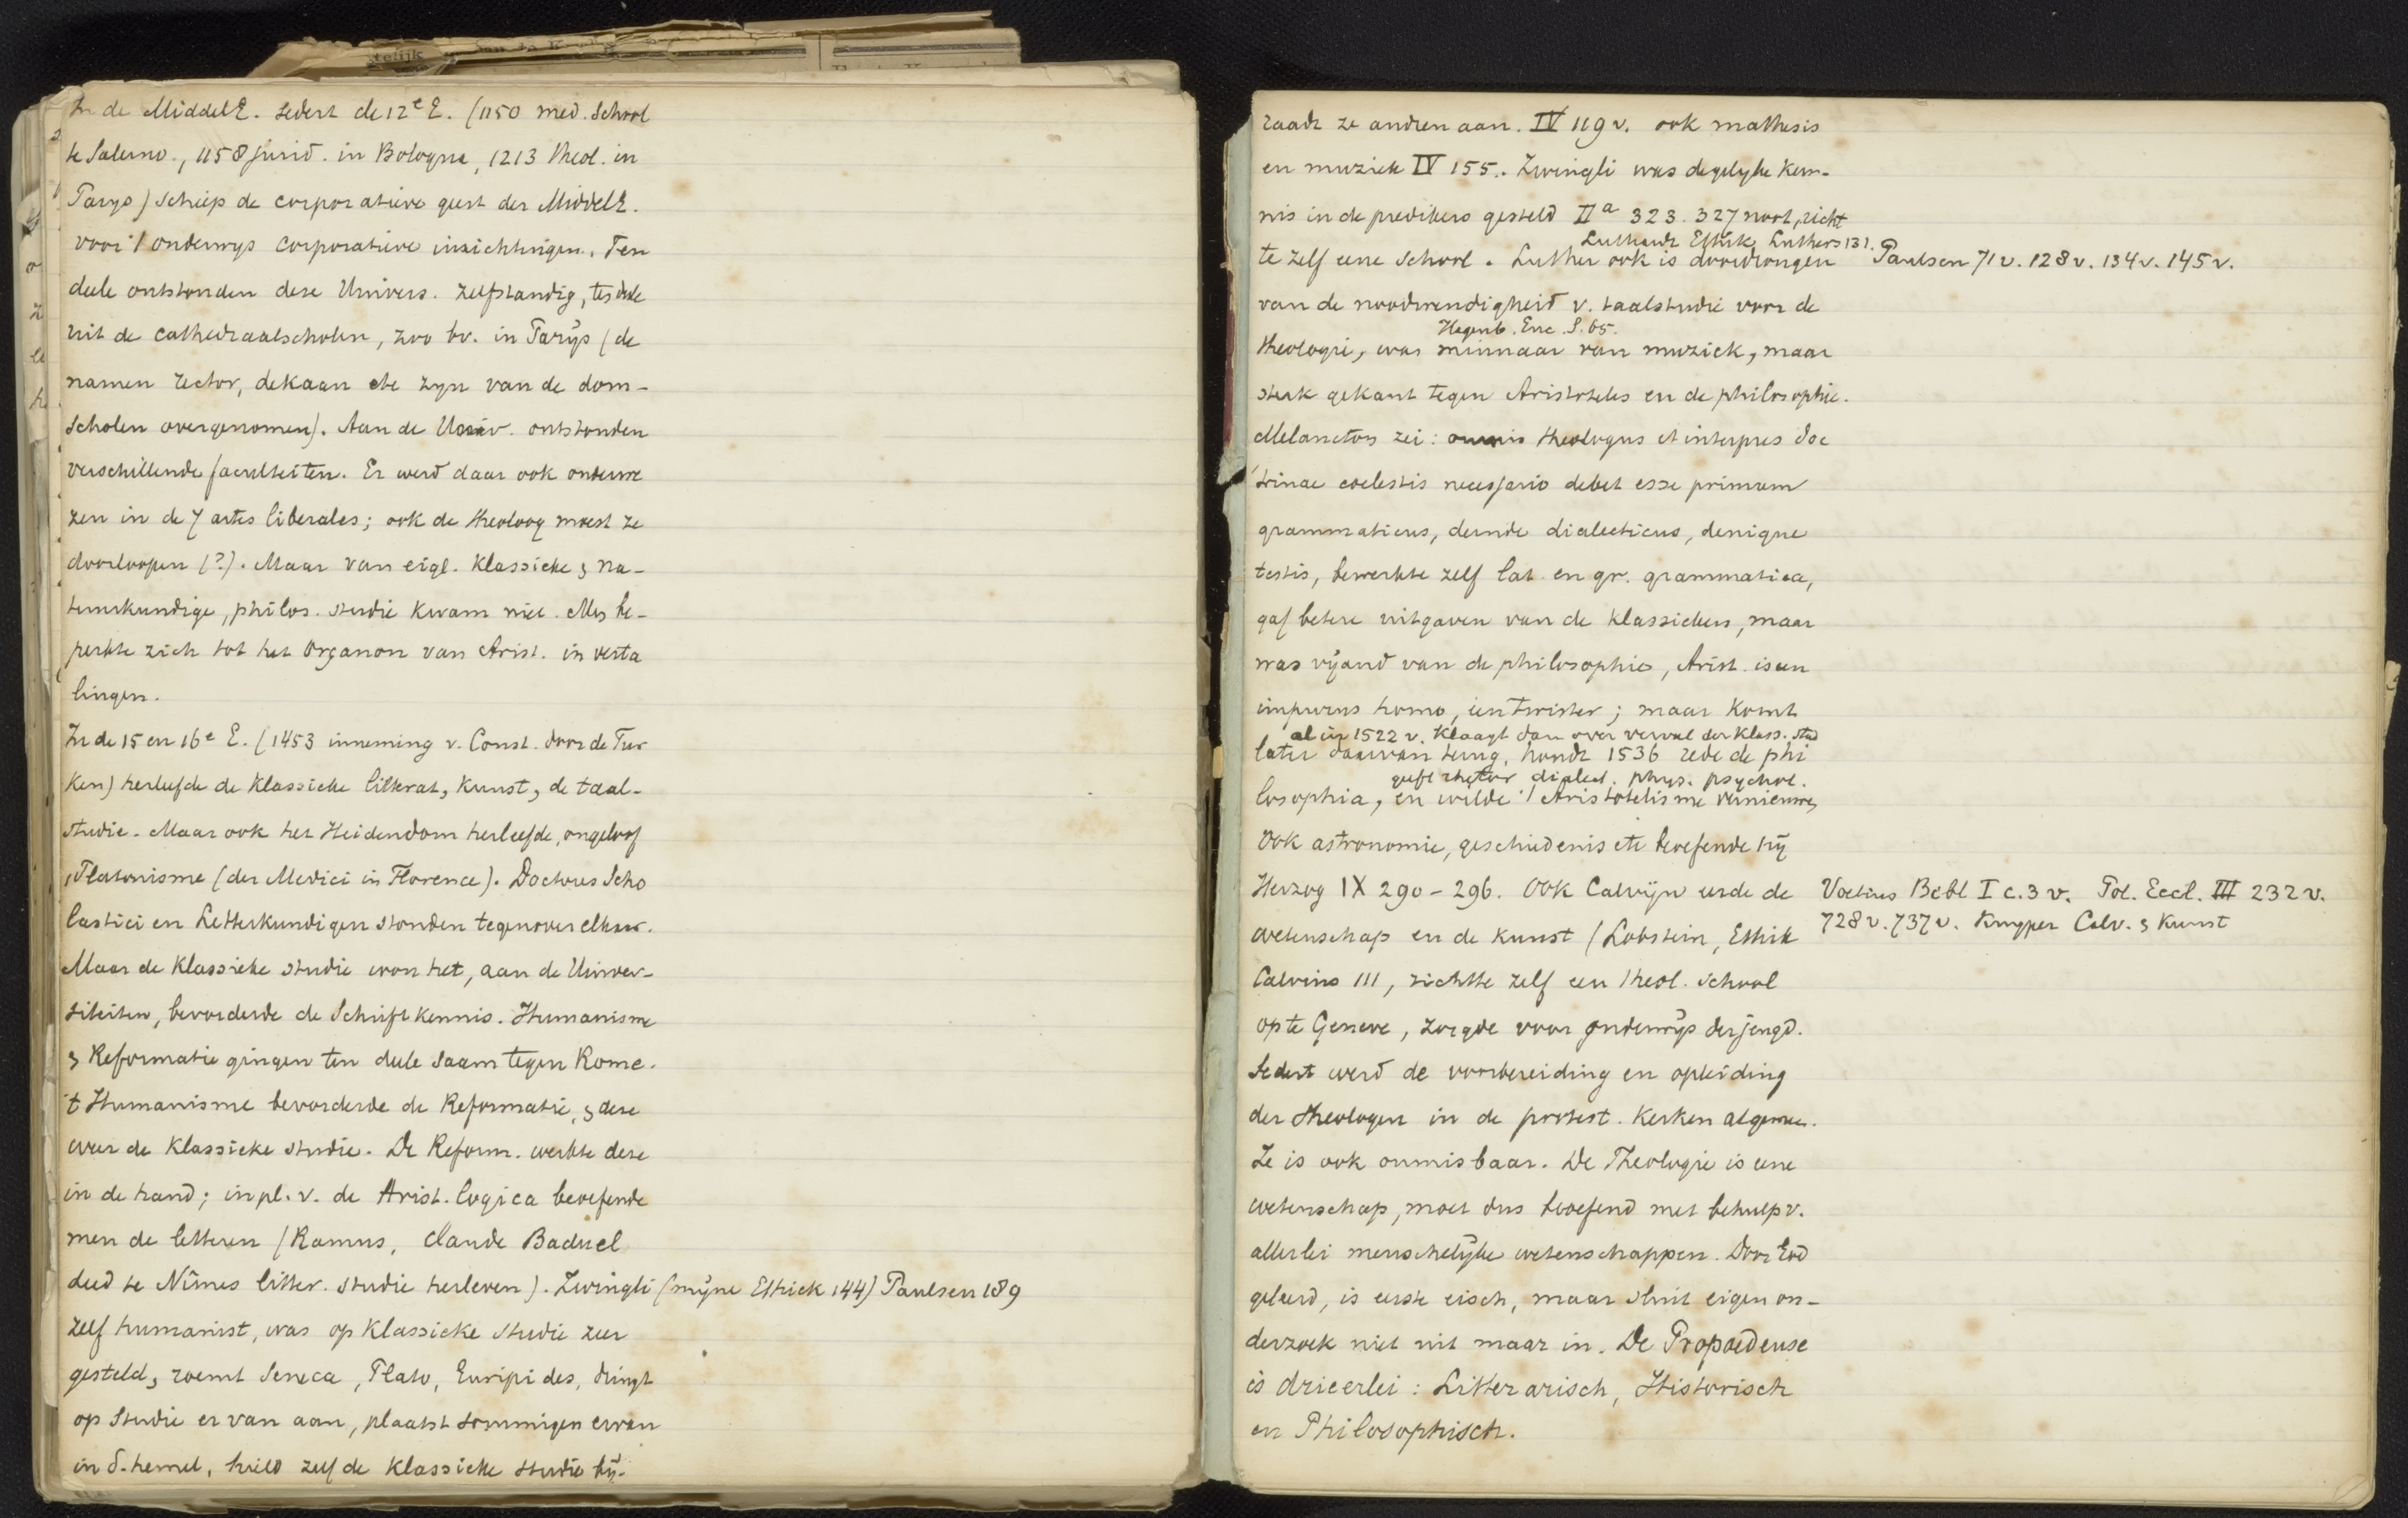 In de MiddelE. sedert de 12e E. (1150 med. School
te Salerno., 1158 jurid. in Bologna, 1213 theol. in
Parys) schiep de corporatieve geest der MiddelE.
voor 't onderwys corporatieve inrichtingen. Ten
deele ontstonden deze Univers. zelfstandig, ten deele
uit de cathedraalscholen, zoo bv. in Parijs (de
namen rector, dekaan etc zyn van de dom-
scholen overgenomen). Aan de Univ. ontstonden
verschillende faculteiten. Er werd daar ook onderwe
zen in de 7 artes liberales; ook de theoloog moest ze
doorloopen (?). Maar van eigl. klassieke & na-
tuurkundige, philos. studie kwam niet. Men be-
perkte zich tot het Organon van Arist. in verta
lingen.
In de 15 en 16e E. (1453 inneming v. Const. door de Tur
ken) herleefde de klassieke litterat, kunst, de taal-
studie. Maar ook het Heidendom herleefde, ongeloof
, Platonisme (der Medici in Florence). Doctores Scho
lastici en Letterkundigen stonden tegenover elkaar.
Maar de klassieke studie won het, aan de Univer-
siteiten, bevorderde de Schriftkennis. Humanisme
& Reformatie gingen ten deele saam tegen Rome.
't Humanisme bevorderde de Reformatie, & deze
weer de klassieke studie. De Reform. werkte deze
in de hand; in pl. v. de Arist. logica beoefende
men de letteren (Ramus, Claude Baduel
deed te Nîmes litter. studie herleven). Zwingli (mijne Ethiek 144) Paulsen 189
zelf humanist, was op klassieke studie zeer
gesteld, roemt Seneca, Plato, Euripides, dringt
op studie er van aan, plaatst sommigen ervan
in d. hemel, hield zelf de klassieke studie bij.
raadt ze andren aan. IV 119 v. ook mathesis
en muziek IV 155. Zwingli was degelyke ken-
nis in de predikers gesteld IIa 323. 327 noot, richt
Luthardt Ethik Luthers 131.
te zelf eene school. Luther ook is doordrongen Paulsen 71 v. 128 v. 134 v. 145 v.
van de noodwendigheid v. taalstudie voor de
Hagenb. Enc. S. 65.
theologie, was minnaar van muziek, maar
sterk gekant tegen Aristoteles en de philosophie.
Melancton zei: omnis theologus et interpres doc
trinae coelestis necessario debet esse primum
grammaticus, deinde dialecticus, denique
testis, bewerkte zelf lat. en gr. grammatica,
gaf betere uitgaven van de klassieken, maar
was vijand van de philosophie, Arist. is een
impurus homo, een twister; maar komt
al in 1522 v. klaagt dan over verval der klass. stud
later daarvan terug, houdt 1536 rede de phi
geeft rhetor dialect. phys. psychol.
losophia, en wilde 't Aristotelisme vernieuwen,
Ook astronomie, geschiedenis etc beoefende hij
Herzog IX 290-296. Ook Calvijn eerde de Voetius Bibl I c. 3 v. Pol. Eccl. III 232 v.
wetenschap en de kunst (Lobstein, Ethik 728 v. 737 v. Kuyper Calv. & Kunst
Calvins 111, richtte zelf een theol. school
op te Geneve, zorgde voor onderwijs der jeugd.
Sedert werd de voorbereiding en opleiding
der theologen in de protest. kerken algemeen.
Ze is ook onmisbaar. De Theologie is eene
wetenschap, moet dus beoefend met behulp v.
allerlei menschelijke wetenschappen. Door God
geleerd, is eerste eisch, maar sluit eigen on-
derzoek niet uit maar in. De Propaedeuse
is driëerlei: Litterarisch, Historisch
en Philosophisch.